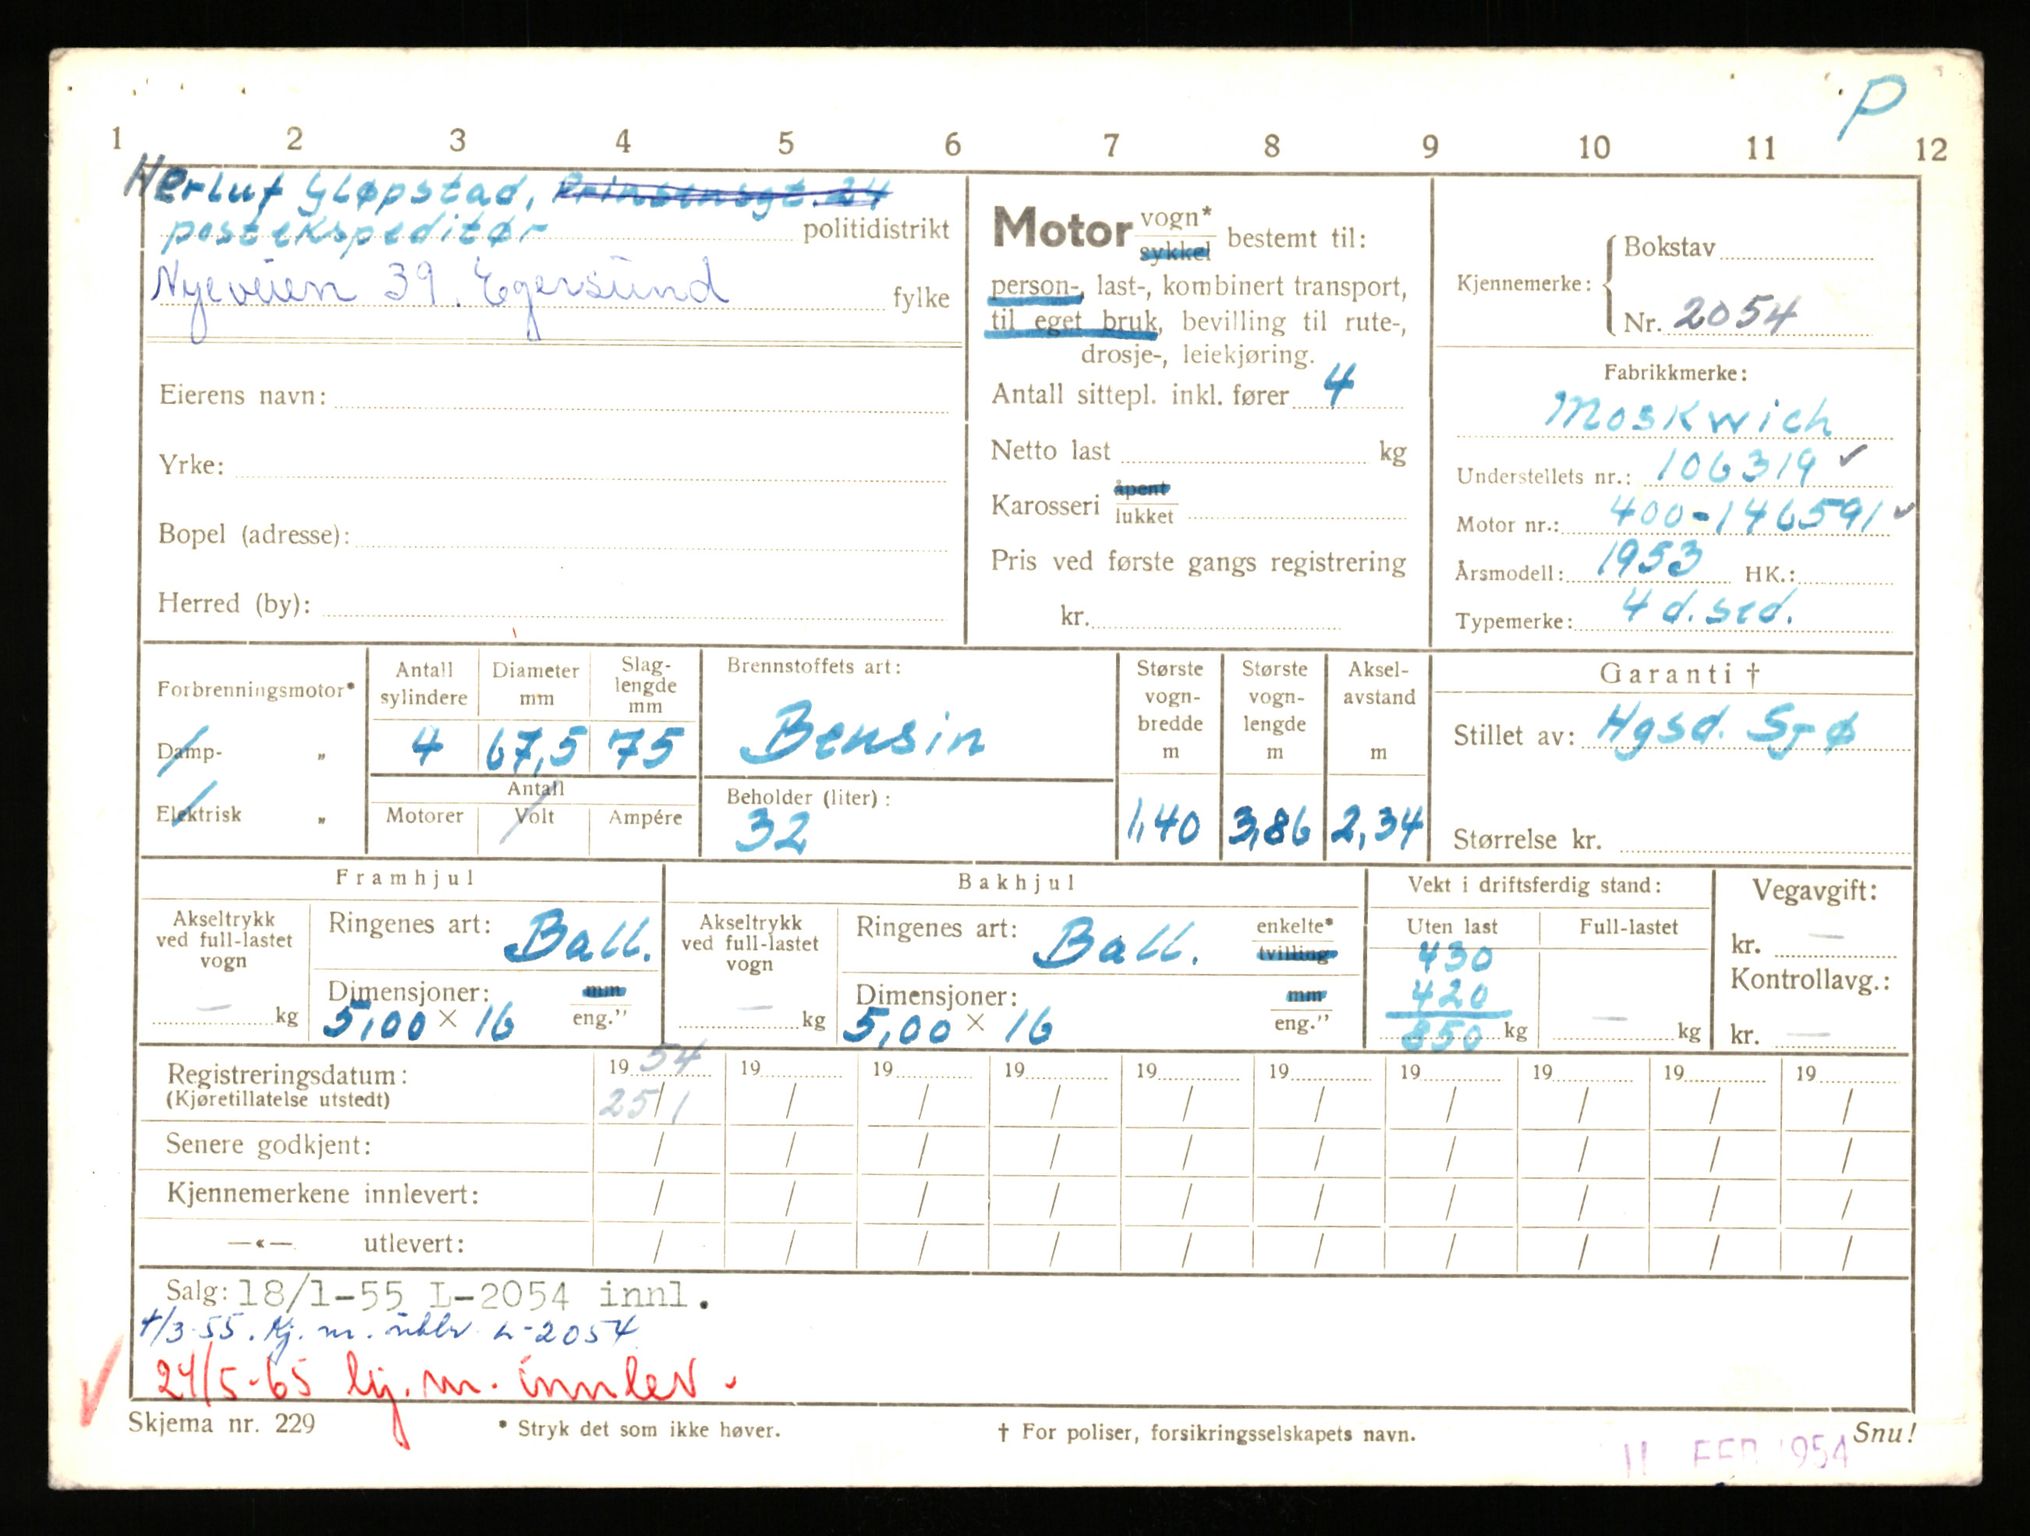 P
1 2 3 4 5 6 7 8 9 10 11 12
Herluf Gløpstad, Prinsensgt. 24
postekspeditør politidistrikt
Nyeveien 39. Egersund fylke
Eierens navn:
Yrke:
Bopel (adresse):
Herred (by):
Motor vogn*
sykkel bestemt til:
person-, last-, kombinert transport,
til eget bruk, bevilling til rute-,
drosje-, leiekjøring.
Antall sittepl. inkl. fører 4
Netto last kg
Karosseri åpent
lukket
Pris ved første gangs registrering
kr.
Kjennemerke: Bokstav
Nr. 2054
Fabrikkmerke:
Moskwich
Understellets nr.: 106319 ✓
Motor nr.: 400-146591 ✓
Årsmodell: 1953 HK.:
Typemerke: 4 d. sed.
Forbrenningsmotor*
Damp- „
Elektrisk „
Antall sylindere
4
Diameter mm
67,5
Slag-lengde mm
75
Antall
Motorer Volt Ampére
Brennstoffets art:
Bensin
Beholder (liter):
32
Største vogn-bredde m
1,40
Største vogn-lengde m
3,86
Aksel-avstand m
2,34
Garanti †
Stillet av: Hgsd. Sjø
Størrelse kr.
Framhjul
Akseltrykk ved full-lastet vogn
— kg
Ringenes art: Ball.
Dimensjoner: mm
5,00 × 16 eng."
Bakhjul
Akseltrykk ved full-lastet vogn
— kg
Ringenes art: Ball. enkelte*
tvilling
Dimensjoner: mm
5,00 × 16 eng."
Vekt i driftsferdig stand:
Uten last Full-lastet
430
420
850 kg — kg
Vegavgift:
kr. —
Kontrollavg.:
kr. —
Registreringsdatum: 19 54 19 19 19 19 19 19 19 19 19
(Kjøretillatelse utstedt) 25/1 / / / / / / / / /
Senere godkjent: / / / / / / / / / /
Kjennemerkene innlevert: / / / / / / / / / /
—«— utlevert: / / / / / / / / / /
Salg: 18/1-55 L-2054 innl.
4/3-55. Kj. m. utlev L-2054
✓ 24/5-65 kj. m. innlev.
Skjema nr. 229 * Stryk det som ikke høver. † For poliser, forsikringsselskapets navn. Snu!
11 FEB 1954